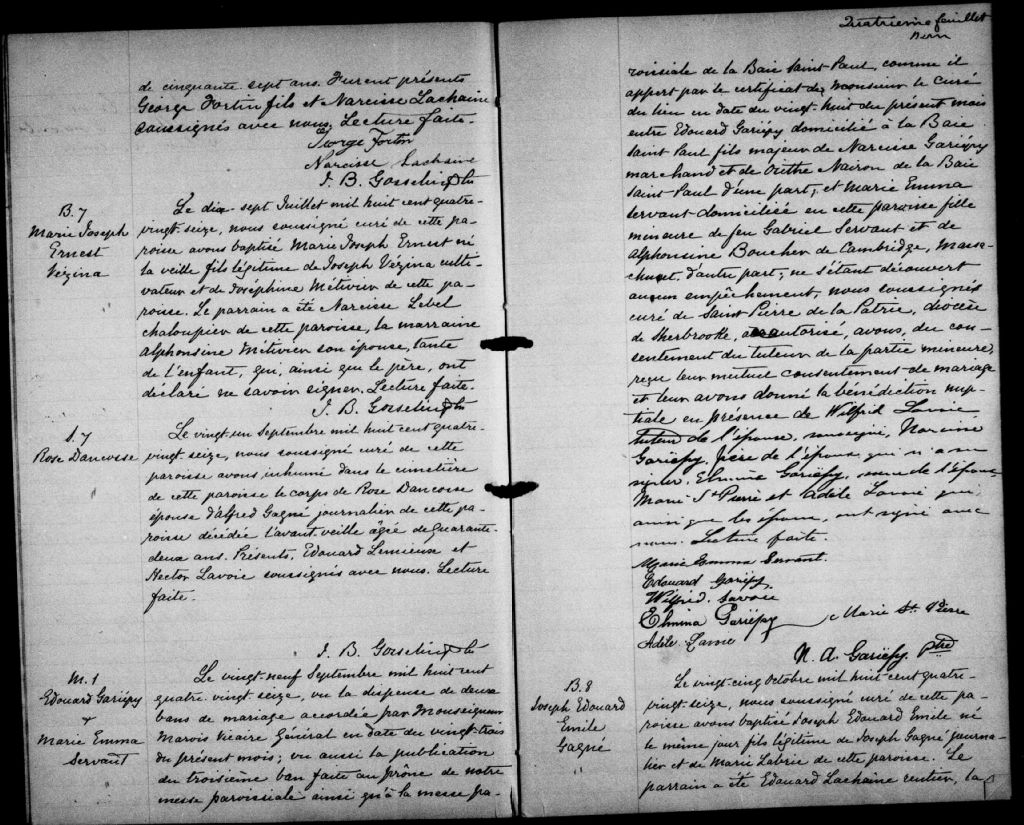 de cinquante sept ans. Furent présents
George Fortin fils et Narcisse Lachaine
soussignés avec nous. Lecture faite.
George Fortin
Narcisse Lachaine
J. B. Gosselin Ptre
B. 7
Marie Joseph
Ernest
Vézina
Le dix-sept Juillet mil huit cent quatre-
vingt-seize, nous soussigné curé de cette pa-
roisse avons baptisé Marie Joseph Ernest né
la veille fils légitime de Joseph Vézina culti-
vateur et de Joséphine Métivier de cette pa-
roisse. Le parrain a été Narcisse Lebel
chaloupier de cette paroisse, la marraine
Alphonsine Métivier son épouse, tante
de l'enfant, qui, ainsi que le père, ont
déclaré ne savoir signer. Lecture faite.
J. B. Gosselin Ptre
S. 7
Rose Dancosse
Le vingt un Septembre mil huit cent quatre-
vingt seize, nous soussigné curé de cette
paroisse avons inhumé dans le cimetière
de cette paroisse le corps de Rose Dancosse
épouse d'Alfred Gagné journalier de cette pa-
roisse décédée l'avant-veille âgée de quarante-
deux ans. Présents, Edouard Lemieux et
Hector Lavoie soussignés avec nous. Lecture
faite.
J. B. Gosselin Ptre
M. 1
Edouard Gariépy
+
Marie Emma
Servant
Le vingt-neuf Septembre mil huit cent
quatre-vingt-seize, vu la dispense de deux
bans de mariage accordée par Monseigneur
Marois Vicaire Général en date du vingt-trois
du présent mois; vu aussi la publication
du troisième ban faite au prône de notre
messe paroissiale ainsi qu'à la messe pa-
Quatrième feuillet
roissiale de la Baie Saint Paul, comme il
appert par le certificat de Monsieur le Curé
du lieu en date du vingt-huit du présent mois
entre Edouard Gariépy domicilié à la Baie
Saint Paul fils majeur de Narcisse Gariépy
marchand et de de la Baie
Saint Paul d'une part; et Marie Emma
Servant domiciliée en cette paroisse fille
mineure de feu Gabriel Servant et de
Alphonsine Boucher de Cambridge, Massa-
chuset. d'autre part; ne s'étant découvert
aucun empêchement, nous soussignés
curé de Saint Pierre de la Patrie, diocèse
de Sherbrooke, autorisé, avons, du con-
sentement du tuteur de la partie mineure,
reçu leur mutuel consentement de mariage
et leur avons donné la bénédiction nup-
tiale en présence de Wilfrid Lavoie
tuteur de l'épouse, soussigné, Narcisse
Gariépy, père de l'époux qui n'a su
signer, Elmina Gariépy, soeur de l'époux
Marie St Pierre et Adèle Lavoie qui,
ainsi que les époux, ont signé avec
nous. Lecture faite.
Marie Emma Servant.
Edouard Gariépy
Wilfrid. Savoie
Elmina Gariépy Marie St. Pierre
Adèle Lavoie
N. A. Gariépy, Ptre
B. 8
Joseph Edouard
Emile
Gagné
Le vingt-cinq Octobre mil huit cent quatre-
vingt-seize, nous soussigné curé de cette pa-
roisse avons baptisé Joseph Edouard Emile né
le même jour fils légitime de Joseph Gagné journa-
lier et de Marie Labrie de cette paroisse. Le
parrain a été Edouard Lachaine rentier, la